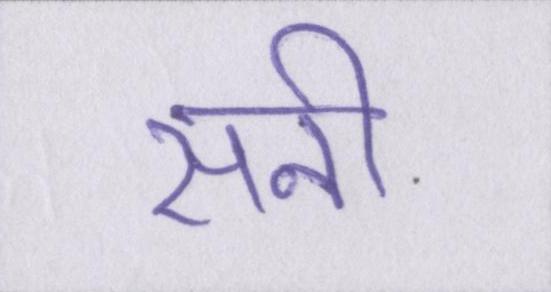 सनी